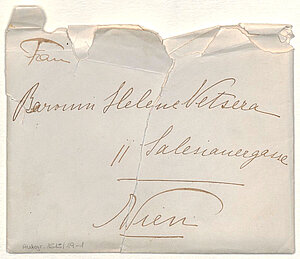 Frau
Baronin Helene Vetsera
11 Salesianergasse
Wien
Autogr. 1515/19-1